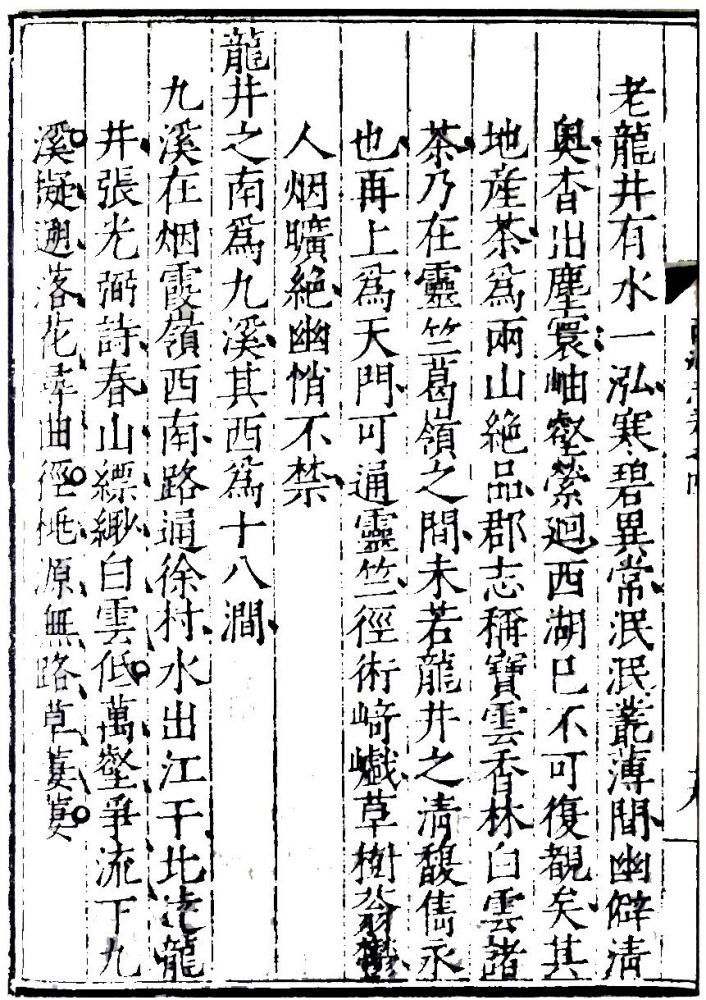 老龍井有水一泓寒碧異常泯泯叢薄間幽僻清
奥杳出塵寰岫壑縈廻西湖已不可復覩矣其
地産茶爲兩山絶品郡志稱寶雲香林白雲諸
茶乃在靈竺葛嶺之間未若龍井之清馥雋永
也再上爲天門可通靈竺徑術崎巇草樹蓊鬱
人烟曠絶幽悄不禁
龍井之南爲九溪其西爲十八澗
九溪在烟霞嶺西南路通徐村水出江干北達龍
井張光弼詩春山縹緲白雲低萬壑爭流下九
溪擬遡落花尋曲徑桃源無路草萋萋